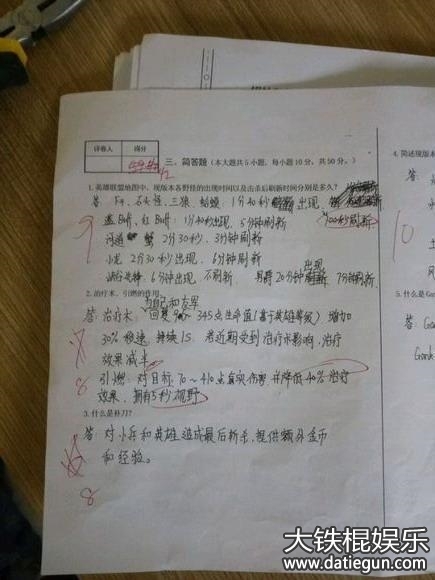 评卷人 得分
三、简答题（本大题共 5 小题，每小题 10 分，共 50 分。）
1. 英雄联盟地图中，现版本各野怪的出现时间以及击杀后刷新时间分别是多久?
答: F4、石头怪、三狼、蛤蟆: 1分40秒 出现,
100秒刷新
蓝Buff、红Buff: 1分40秒出现, 5分钟刷新
河道 蟹 2分30秒. 3分钟刷新
小龙 2分30秒出现, 6分钟刷新
峡谷先锋: 6分钟出现 不刷新 男爵20分钟 出现 7分钟刷新
9
2. 治疗术、引燃的作用。
与自己和友军
答: 治疗术: 回复 90~345点生命值(基于英雄等级) 增加
30% 移速 持续1S. 若近期受到治疗术影响, 治疗
效果减半
引燃: 对目标70～410点真实伤害 并降低40%治疗
效果, 拥有5秒视野
8
3. 什么是补刀?
答: 对小兵和英雄造成最后斩杀, 提供额外金币
和经验。
8
4. 简述现版
答:
10
5. 什么是G
答: Gan
Gank
大铁棍娱乐
www.datiegun.com